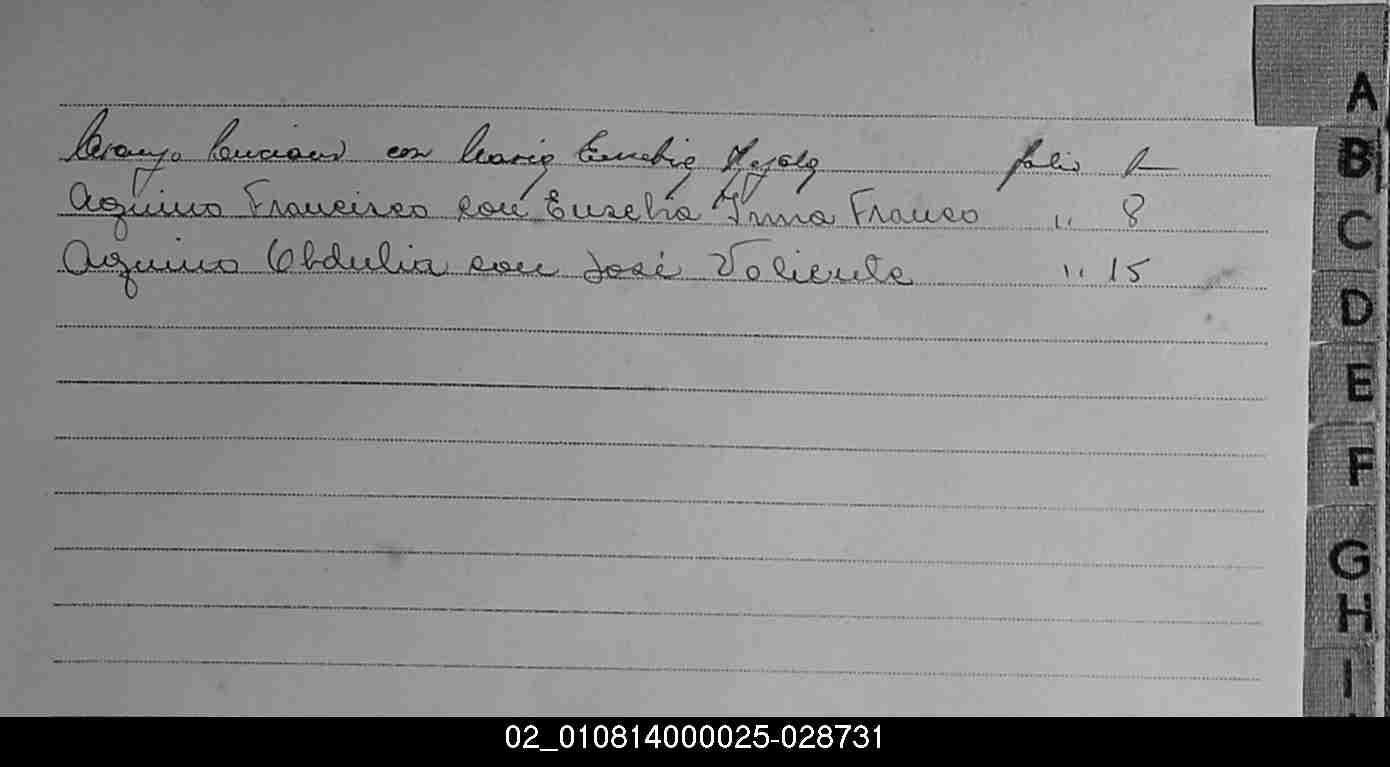 Luciano con Maria Eusebia folio
Aquino Francisco con Eusebia Irma Franco " 8
Aquino Obdulia con José Valiente " 15
A
B
C
D
E
F
G
H
I
02_010814000025-028731